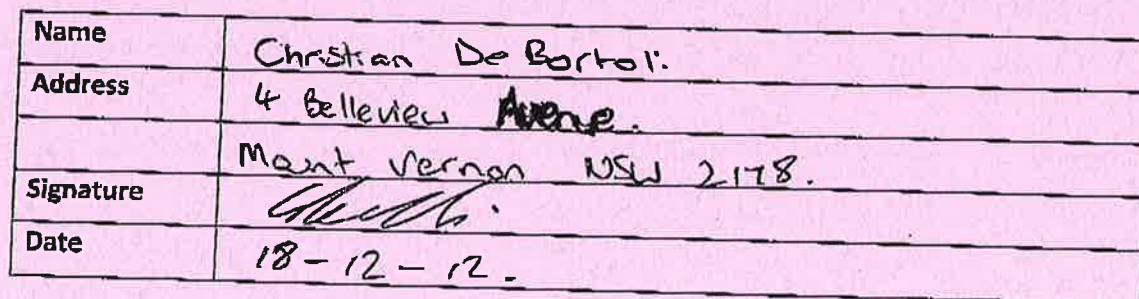 Name Christian De Bortoli
Address 4 Belleview Avenue.
Mount Vernon NSW 2178.
Signature
Date 18-12-12.